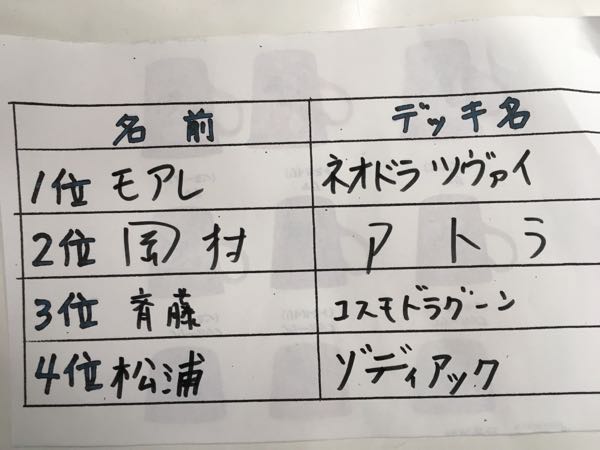 名前 デッキ名
1位 モアレ ネオドラツヴァイ
2位 岡村 アトラ
3位 斉藤 コスモドラグーン
4位 松浦 ゾディアック